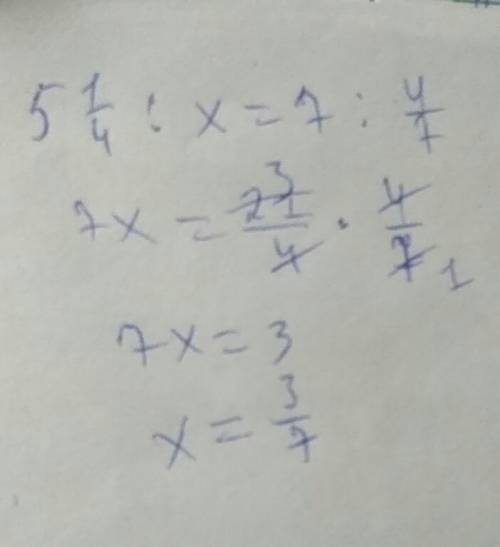 5 1/4 : x = 7 : 4/7
7x = 21/4 · 4/7 3 1
7x = 3
x = 3/7